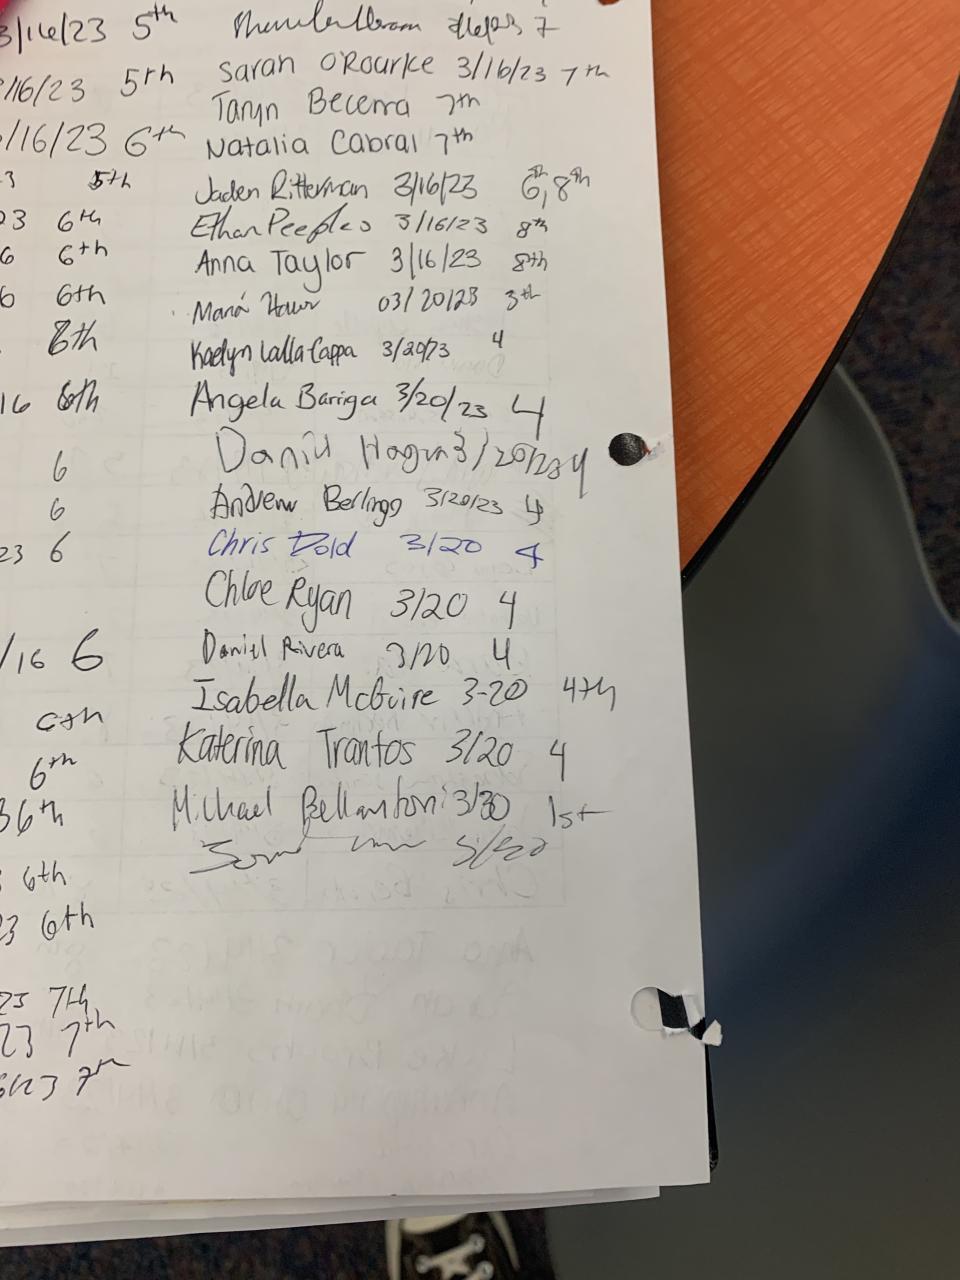 3/16/23 5th
/16/23 5th
/16/23 6th
3 5th
23 6th
6 6th
6 6th
8th
16 6th
6
6
23 6
/16 6
6th
6th
3 6th
6th
23 6th
23 7th
23 7th
6/23 7th
7
Sarah O'Rourke 3/16/23 7th
Taryn Becerra 7th
Natalia Cabral 7th
Jaden Ritterman 3/16/23 6th, 8th
Ethan Peeples 3/16/23 8th
Anna Taylor 3/16/23 8th
03/20/23 3th
Kaelyn LallaCappa 3/20/23 4
Angela Bariga 3/20/23 4
3/20/23 4
Andrew Berlingo 3/20/23 4
Chris Dold 3/20 4
Chloe Ryan 3/20 4
Daniel Rivera 3/20 4
Isabella McGuire 3-20 4th
Katerina Trantos 3/20 4
Michael Bellantoni 3/30 1st